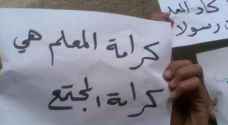 كرامة المعلم هي
كرامة المجتمع
كاد المعلم
رسولا